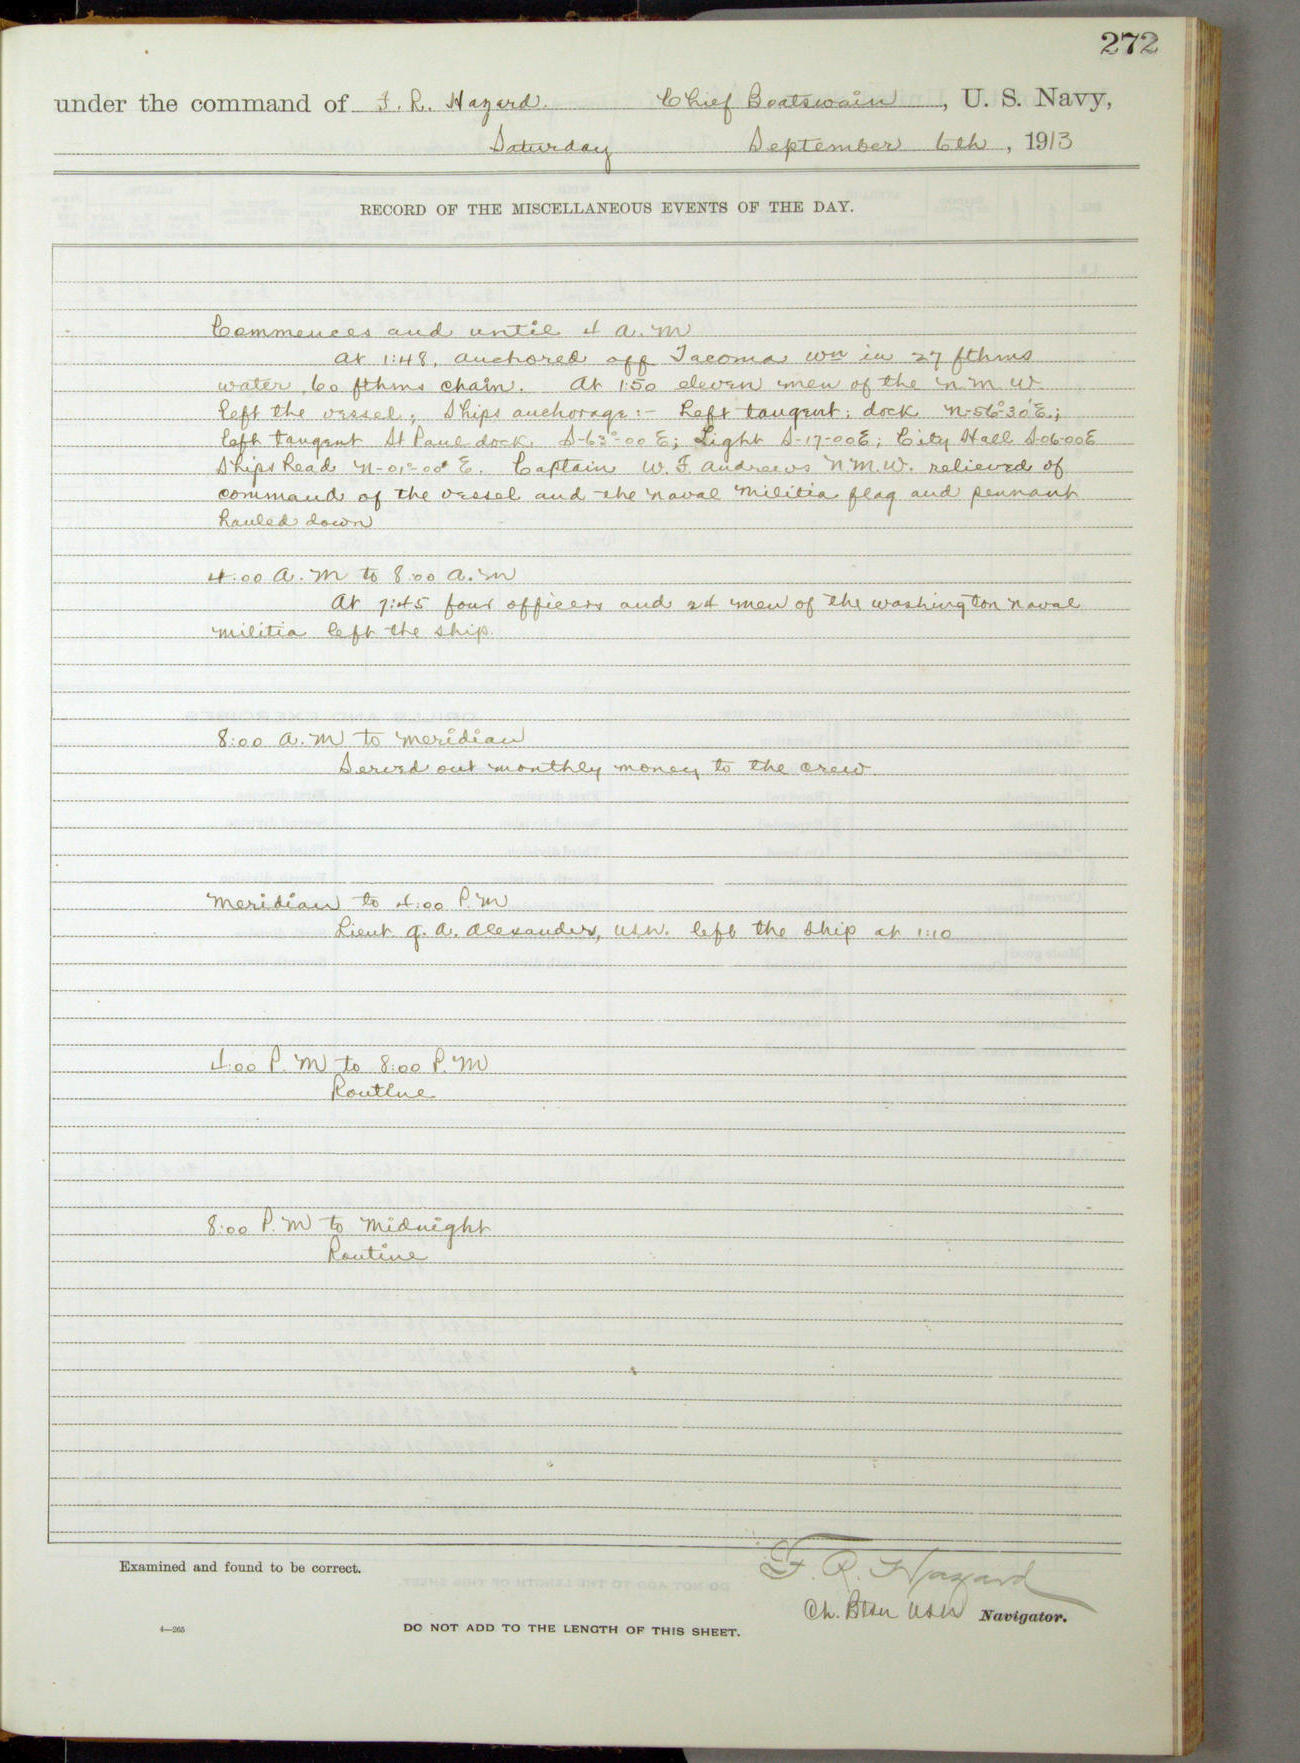 272
under the command of F. R. Hazard. Chief Boatswain, U. S. Navy,
Saturday September 6th, 1913
RECORD OF THE MISCELLANEOUS EVENTS OF THE DAY.
Commences and until 4 a.m
At 1:48, anchored off Tacoma wn in 27 fthms
water, 60 fthms chain. At 1:50 eleven men of the N M W.
left the vessel; Ships anchorage:- Left tangent; dock N-56°-30'E;
left tangent St Paul dock. S-63°-00 E; Light S-17-00E; City Hall S-06-00E
Ships head N-01°-00' E. Captain W. F. Andrews N.M.W. relieved of
command of the vessel and the naval militia flag and pennant
hauled down
4:00 a.m to 8:00 a.m
At 7:45 four officers and 24 men of the washington naval
militia left the ship.
8:00 a.m to meridian
Served out monthly money to the crew.
Meridian to 4:00 P.M
Lieut. A. Alexander, USN. left the ship at 1:10
4:00 P.M to 8:00 P.M
Routine
8:00 P.M to Midnight
Routine
Examined and found to be correct.
F. R. Hazard
Ch. Btsn USN Navigator.
4—265
DO NOT ADD TO THE LENGTH OF THIS SHEET.